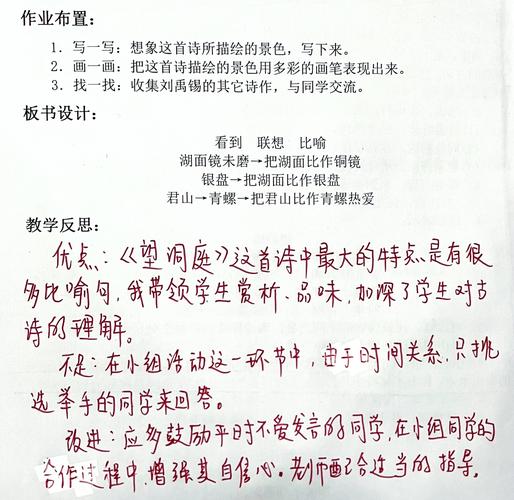 作业布置:
1. 写一写：想象这首诗所描绘的景色，写下来。
2. 画一画：把这首诗描绘的景色用多彩的画笔表现出来。
3. 找一找：收集刘禹锡的其它诗作，与同学交流。
板书设计：
看到 联想 比喻
湖面镜未磨→把湖面比作铜镜
银盘→把湖面比作银盘
君山→青螺→把君山比作青螺热爱
教学反思：
优点：《望洞庭》这首诗中最大的特点是有很
多比喻句，我带领学生赏析、品味，加深了学生对古
诗的理解。
不足：在小组活动这一环节中，由于时间关系，只挑
选举手的同学来回答。
改进：应多鼓励平时不爱发言的同学，在小组同学的
合作过程中，增强其自信心。老师配合适当的指导。